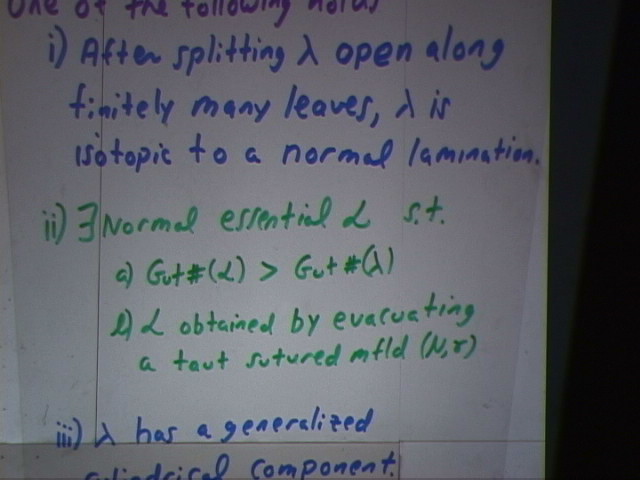 One of the following holds
i) After splitting λ open along
finitely many leaves, λ is
isotopic to a normal lamination.
ii) ∃ Normal essential L s.t.
a) Gut#(L) > Gut#(λ)
b) L obtained by evacuating
a taut sutured mfld (N,γ)
iii) λ has a generalized
cylindrical component.